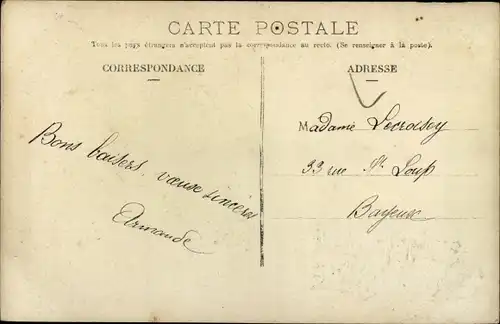 CARTE POSTALE
Tous les pays étrangers n'acceptent pas la correspondance au recto. (Se renseigner à la poste).
CORRESPONDANCE
ADRESSE
Bons baisers, vœux sincères
Armande
Madame Lecroisey
33 rue St Loup
Bayeux